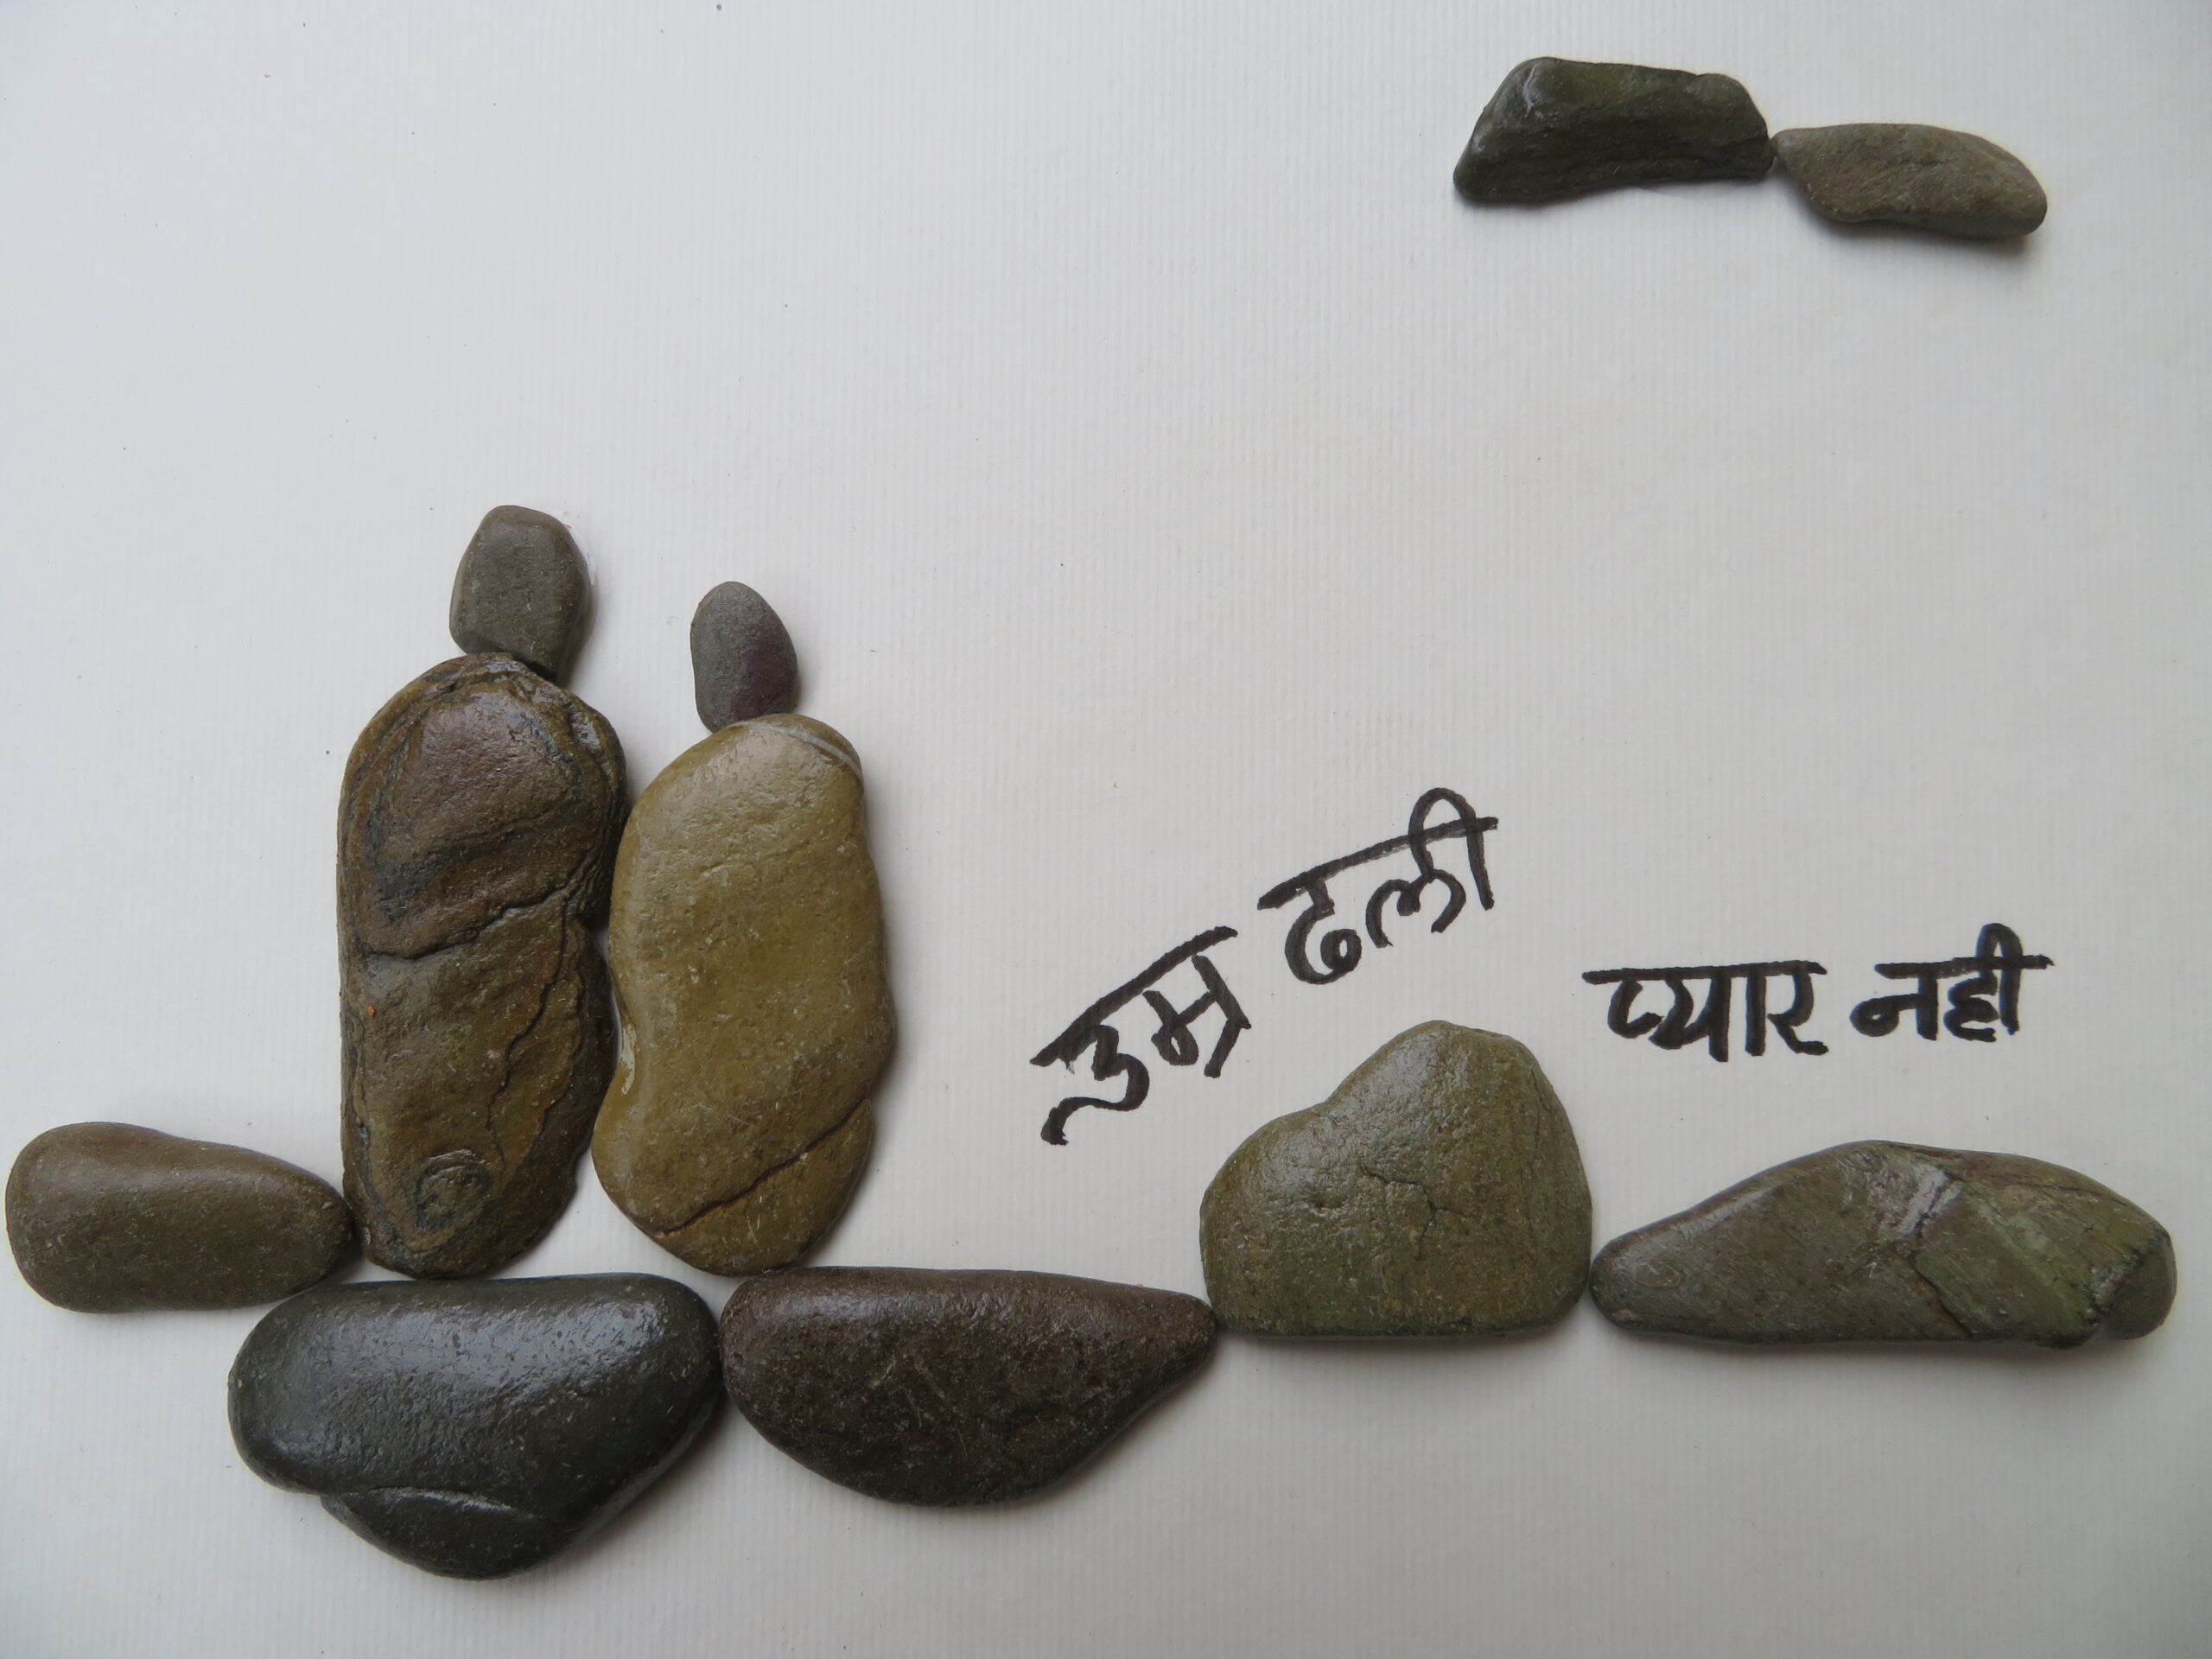 उम्र ढली
प्यार नही